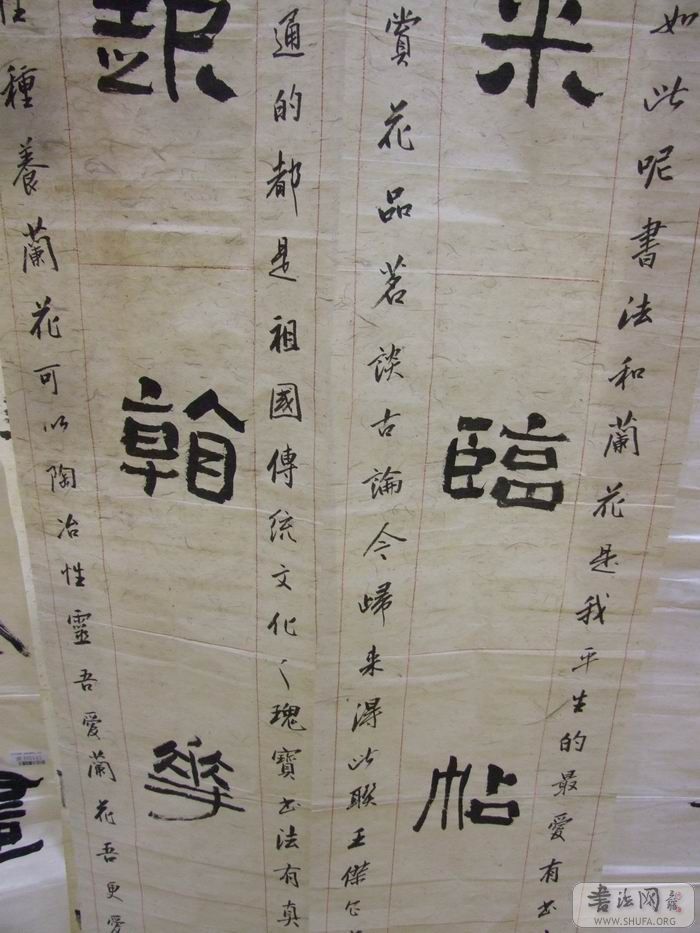 如此呢書法和蘭花是我平生的最愛有書
来臨帖
賞花品茗談古論今歸来得此聯王傑
通的都是祖國傳統文化之瑰寶書法有真
翰華
種養蘭花可以陶冶性靈吾愛蘭花吾更愛
书法网
WWW.SHUFA.ORG